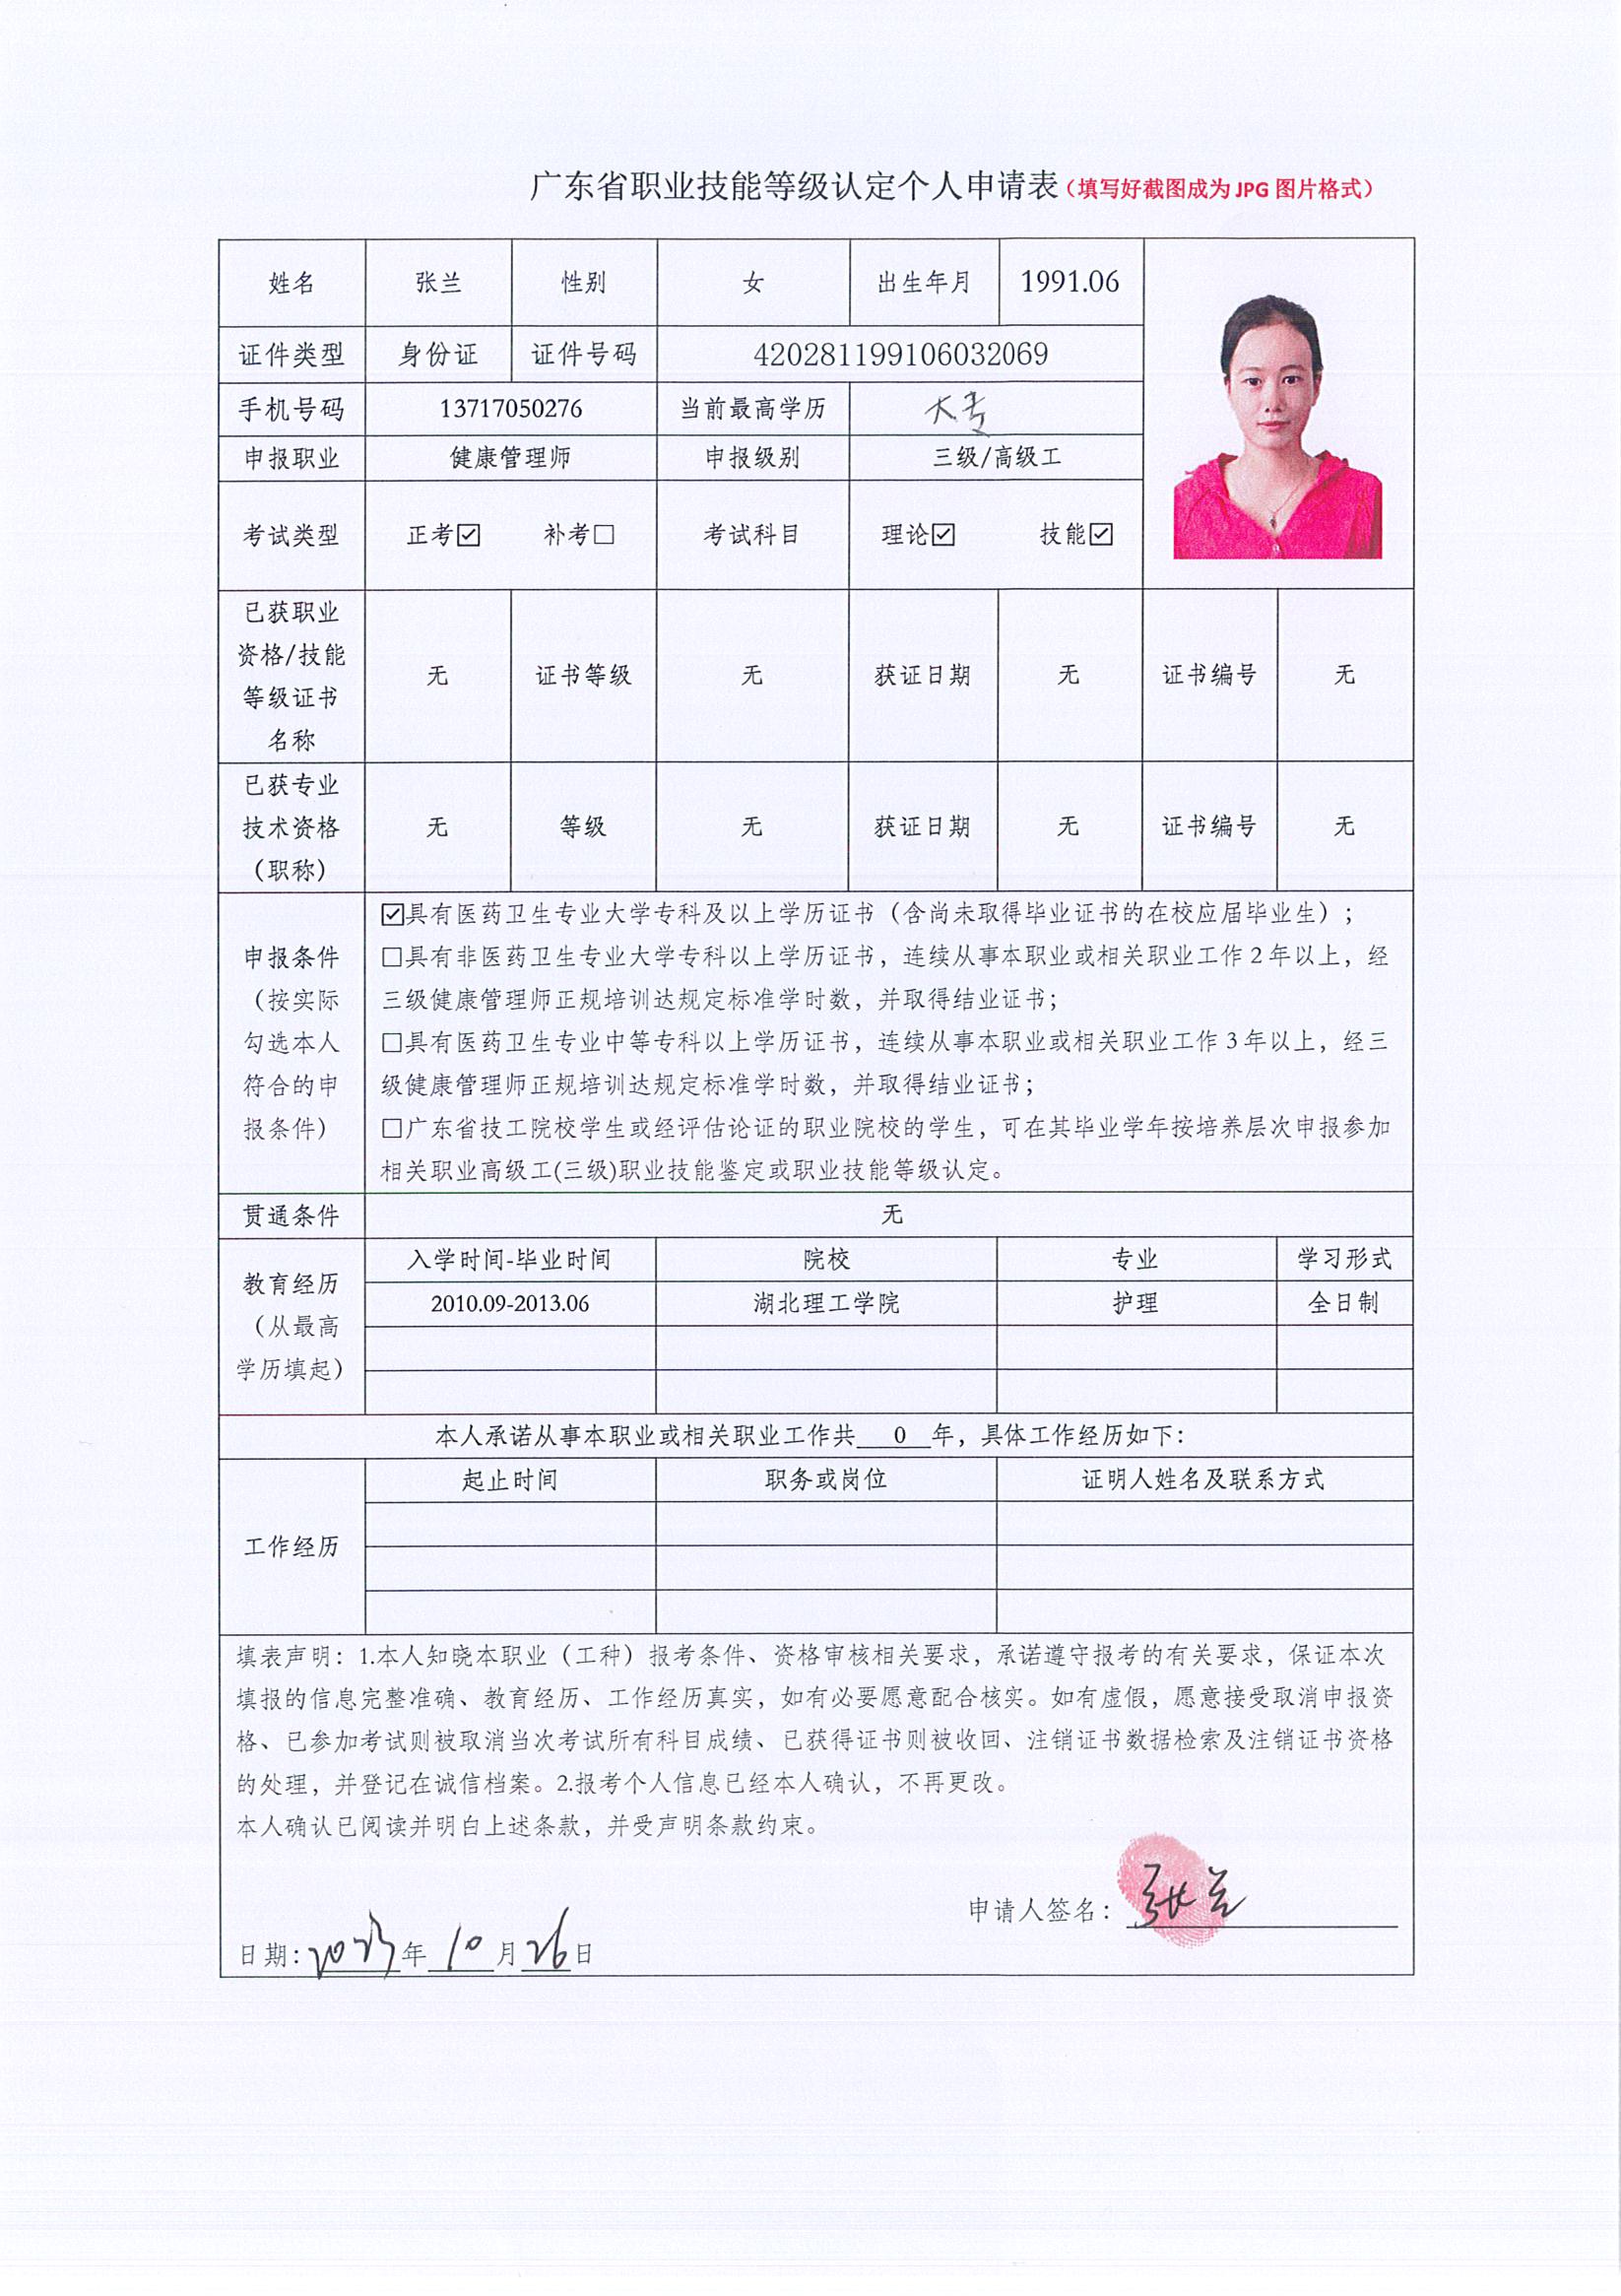 广东省职业技能等级认定个人申请表（填写好截图成为 JPG 图片格式）
姓名 张兰 性别 女 出生年月 1991.06
证件类型 身份证 证件号码 420281199106032069
手机号码 13717050276 当前最高学历 大专
申报职业 健康管理师 申报级别 三级/高级工
考试类型 正考☑ 补考☐ 考试科目 理论☑ 技能☑
已获职业
资格/技能
等级证书
名称
无 证书等级 无 获证日期 无 证书编号 无
已获专业
技术资格
（职称）
无 等级 无 获证日期 无 证书编号 无
申报条件
（按实际
勾选本人
符合的申
报条件）
☑具有医药卫生专业大学专科及以上学历证书（含尚未取得毕业证书的在校应届毕业生）；
☐具有非医药卫生专业大学专科以上学历证书，连续从事本职业或相关职业工作 2 年以上，经
三级健康管理师正规培训达规定标准学时数，并取得结业证书；
☐具有医药卫生专业中等专科以上学历证书，连续从事本职业或相关职业工作 3 年以上，经三
级健康管理师正规培训达规定标准学时数，并取得结业证书；
☐广东省技工院校学生或经评估论证的职业院校的学生，可在其毕业学年按培养层次申报参加
相关职业高级工(三级)职业技能鉴定或职业技能等级认定。
贯通条件 无
教育经历
（从最高
学历填起）
入学时间-毕业时间 院校 专业 学习形式
2010.09-2013.06 湖北理工学院 护理 全日制
本人承诺从事本职业或相关职业工作共 0 年，具体工作经历如下：
工作经历
起止时间 职务或岗位 证明人姓名及联系方式
填表声明：1.本人知晓本职业（工种）报考条件、资格审核相关要求，承诺遵守报考的有关要求，保证本次
填报的信息完整准确、教育经历、工作经历真实，如有必要愿意配合核实。如有虚假，愿意接受取消申报资
格、已参加考试则被取消当次考试所有科目成绩、已获得证书则被收回、注销证书数据检索及注销证书资格
的处理，并登记在诚信档案。2.报考个人信息已经本人确认，不再更改。
本人确认已阅读并明白上述条款，并受声明条款约束。
申请人签名：张兰
日期:2023年10月26日